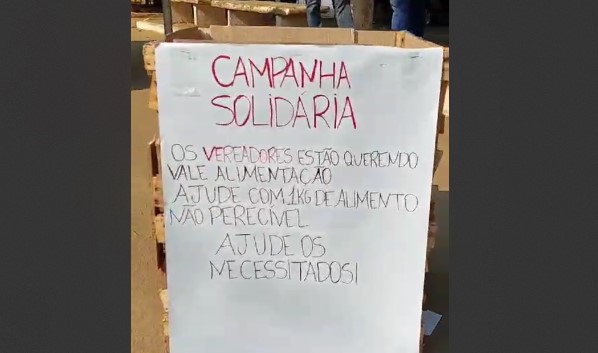 CAMPANHA
SOLIDÁRIA
OS VEREADORES ESTÃO QUERENDO
VALE ALIMENTAÇÃO
AJUDE COM 1KG DE ALIMENTO
NÃO PERECÍVEL
AJUDE OS
NECESSITADOS!